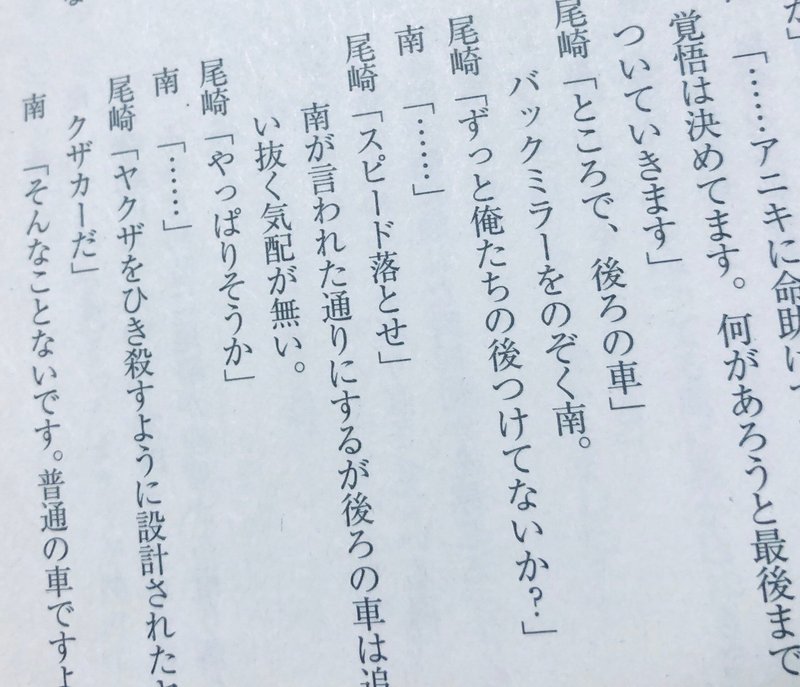 「……アニキに命助け
覚悟は決めてます。何があろうと最後まで
ついていきます」
尾崎「ところで、後ろの車」
バックミラーをのぞく南。
尾崎「ずっと俺たちの後つけてないか？」
南　「……」
尾崎「スピード落とせ」
南が言われた通りにするが後ろの車は追
い抜く気配が無い。
尾崎「やっぱりそうか」
南　「……」
尾崎「ヤクザをひき殺すように設計されたヤ
クザカーだ」
南　「そんなことないです。普通の車ですよ